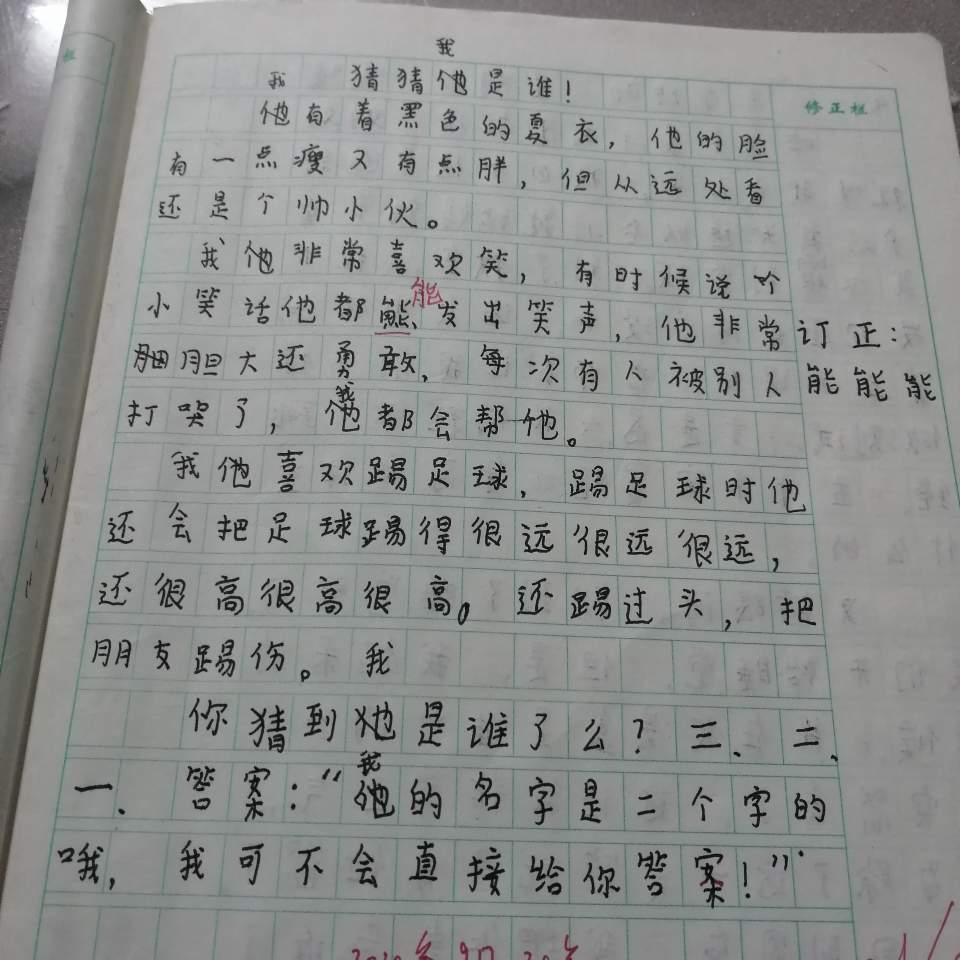 我
我 猜猜他是谁!
修正栏
他有着黑色的夏衣,他的脸
有一点瘦又有点胖,但从远处看
还是个帅小伙。
我他非常喜欢笑,有时候说个
能
小笑话他都熊发出笑声,他非常
订正:
胭胆大还勇敢,每次有人被别人
能能能
我
打哭了,他都会帮他。
我他喜欢踢足球,踢足球时他
还会把足球踢得很远很远很远,
还很高很高很高。还踢过头,把
朋友踢伤。我
你猜到他是谁了么?三、二、
我
一、答案:“他的名字是二个字的
哦,我可不会直接给你答案!”